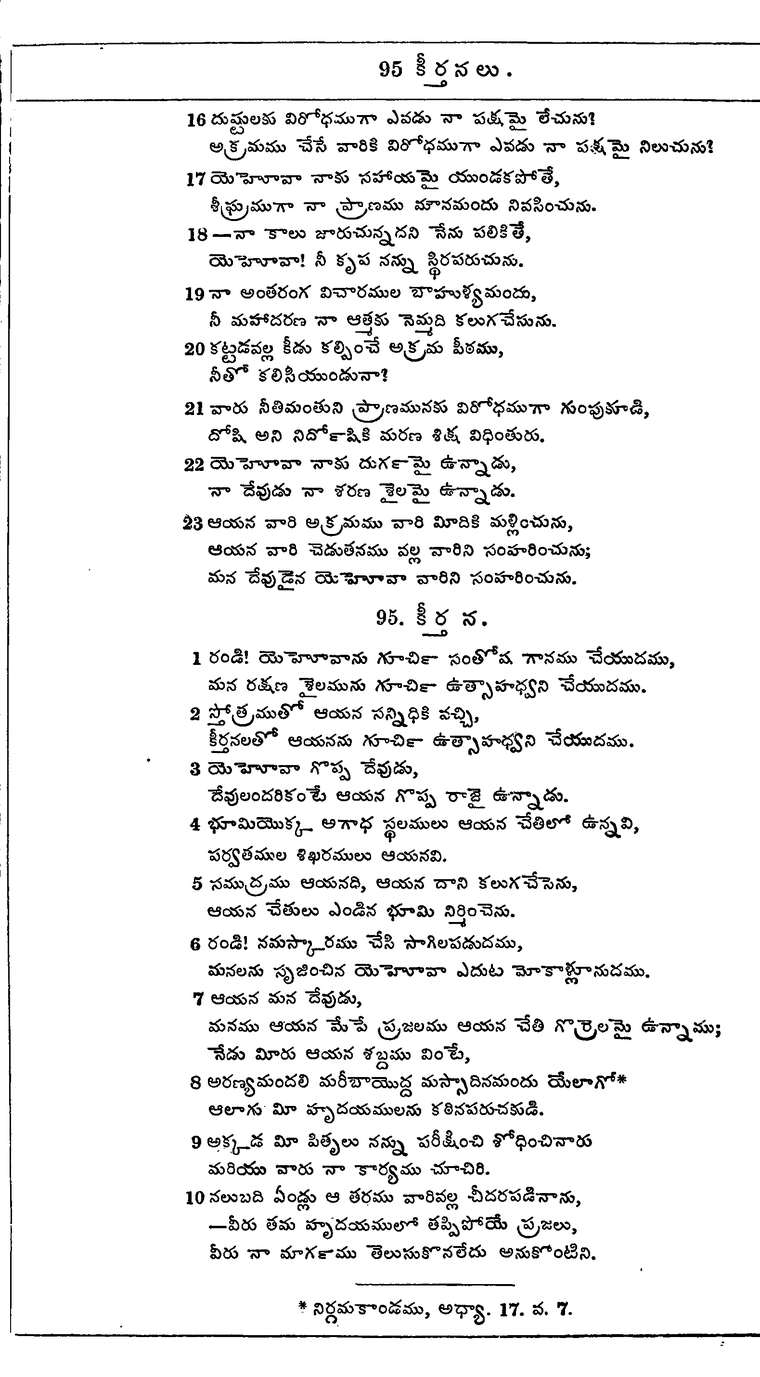 95 కీర్తనలు.
16 దుష్టులకు విరోధముగా ఎవడు నా పక్షమై లేచును?
అక్రమము చేసే వారికి విరోధముగా ఎవడు నా పక్షమై నిలుచును?
17 యెహెూవా నాకు సహాయమై యుండకపోతే,
శీఘ్రముగా నా ప్రాణము మౌనమందు నివసించును.
18 —నా కాలు జారుచున్నదని నేను పలికితే,
యెహెూవా! నీ కృప నన్ను స్థిరపరుచును.
19 నా అంతరంగ విచారముల బాహుళ్యమందు,
నీ మహాదరణ నా ఆత్మకు నెమ్మది కలుగచేసును.
20 కట్టడవల్ల కీడు కల్పించే అక్రమ పీఠము,
నీతో కలిసియుండునా?
21 వారు నీతిమంతుని ప్రాణమునకు విరోధముగా గుంపుకూడి,
దోషి అని నిదోర్షికి మరణ శిక్ష విధింతురు.
22 యెహెూవా నాకు దుగర్మై ఉన్నాడు,
నా దేవుడు నా శరణ శైలమై ఉన్నాడు.
23 ఆయన వారి అక్రమము వారి మీదికి మళ్లించును,
ఆయన వారి చెడుతనము వల్ల వారిని సంహరించును;
మన దేవుడైన యెహెూవా వారిని సంహరించును.
95. కీర్తన.
1 రండి! యెహెూవాను గూచిర్ సంతోష గానము చేయుదము,
మన రక్షణ శైలమును గూచిర్ ఉత్సాహధ్వని చేయుదము.
2 స్తోత్రముతో ఆయన సన్నిధికి వచ్చి,
కీర్తనలతో ఆయనను గూచిర్ ఉత్సాహధ్వని చేయుదము.
3 యెహెూవా గొప్ప దేవుడు,
దేవులందరికంటే ఆయన గొప్ప రాజై ఉన్నాడు.
4 భూమియొక్క అగాధ స్థలములు ఆయన చేతిలో ఉన్నవి,
పర్వతముల శిఖరములు ఆయనవి.
5 సముద్రము ఆయనది, ఆయన దాని కలుగచేసెను,
ఆయన చేతులు ఎండిన భూమి నిర్మించెను.
6 రండి! నమస్కారము చేసి సాగిలపడుదము,
మనలను సృజించిన యెహెూవా ఎదుట మోకాళ్లూనుదము.
7 ఆయన మన దేవుడు,
మనము ఆయన మేపే ప్రజలము ఆయన చేతి గొర్రెలమై ఉన్నాము;
నేడు మీరు ఆయన శబ్దము వింటే,
8 అరణ్యమందలి మరీబాయొద్ద మస్సాదినమందు యేలాగో*
ఆలాగు మీ హృదయములను కఠినపరుచకుడి.
9 అక్కడ మీ పితృలు నన్ను పరీక్షించి శోధించినారు
మరియు వారు నా కార్యము చూచిరి.
10 నలుబది ఏండ్లు ఆ తరము వారివల్ల చీదరపడినాను,
—వీరు తమ హృదయములో తప్పిపోయే ప్రజలు,
వీరు నా మాగర్ము తెలుసుకొనలేదు అనుకోంటిని.
* నిర్గమకాండము, అధ్యా. 17. వ. 7.